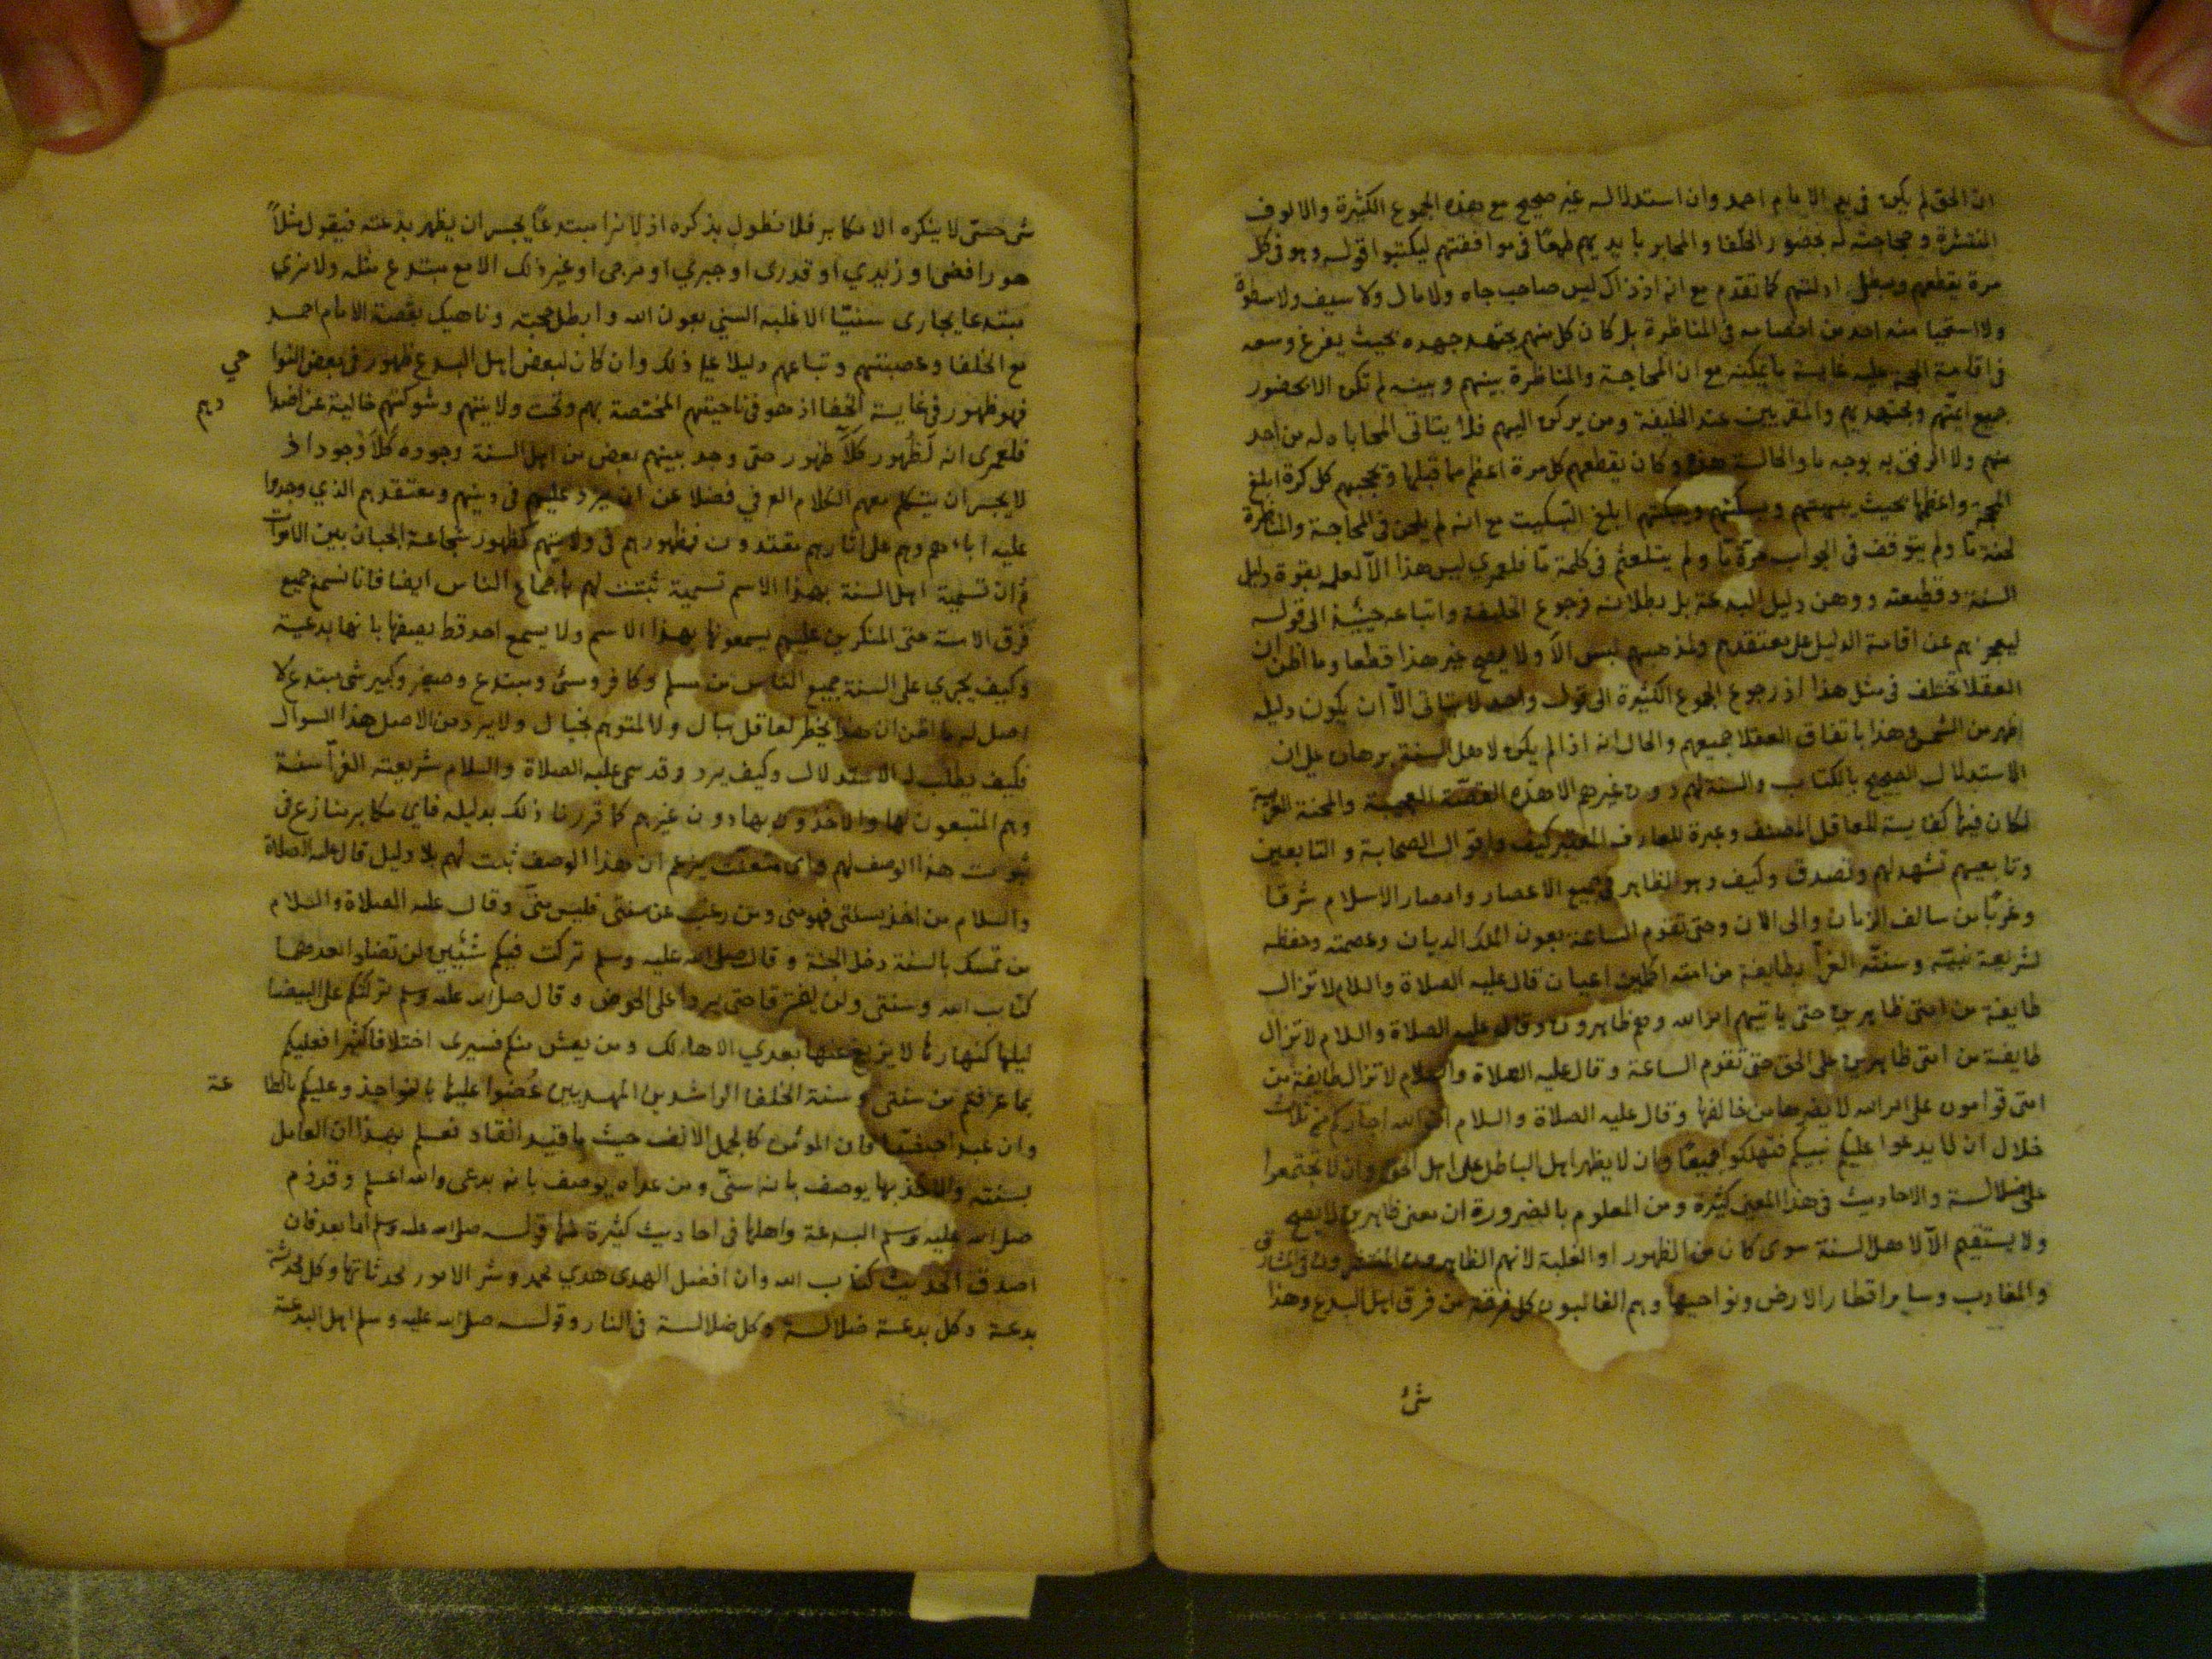 ان الحق لم يكن في يد الامام احمد وان استدلاله غير صحيح مع هذه الجموع الكثيرة والالوف
المنتشرة ومحاجته له بحضور الخلفا والمحابر بايديهم طمعًا في موافقتهم ليكتبوا قوله وهو في كل
مرة يقطعهم ويبطل ادلتهم كما تقدم مع انه اذ ذاك ليس صاحب جاه ولا مال ولا سيف ولا سطوة
ولا استحيا منه احد من اخصامه في المناظرة بل كان كل منهم يجتهد جهده بحيث يفرغ وسعه
في اقامة الحجة عليه غاية ما يمكنه مع ان المحاجة والمناظرة بينهم وبينه لم تكن الا بحضور
جميع ائمتهم ومجتهديهم والمقربين عند الخليفة ومن يركن اليهم فلا يتاتى المحاباه له من احد
منهم ولا الرفق به بوجه ما والحالة هذه وكان يقطعهم كل مرة اعظم مما قبلها ويحجبهم كل كرة ابلغ
الحجة واعظمها بحيث يبهتهم ويسكتهم ويبكتهم ابلغ التبكيت مع انه لم يلحن في المحاجة والمناظرة
لحنة مّا ولم يتوقف في الجواب مرّة مّا ولم يتلعثم في كلمة مّا فلعمري ليس هذا الا لعلمه بقوة دليل
السنة وقطيعته ووهن دليل البدعة بل بطلانه فرجوع الخليفة واتباعه حينئذ الى قوله
ليعجزهم عن اقامة الدليل على معتقدهم ولمذهبهم ليس الا ولا يصح غير هذا قطعا وما اظن ان
العقلا تختلف في مثل هذا اذ رجوع الجموع الكثيرة الى قول واحد لا يتاتى الا ان يكون دليله
اظهر من الشمس وهذا باتفاق العقلا جميعهم والحال انه اذا لم يكن لاهل السنة برهان على ان
الاستدلال الصحيح بالكتاب والسنة لهم دون غيرهم الا هذه القصّة العجيبة والمحنة الغريبة
لكان فيها كفاية للعاقل المصنف وعبرة للعارف المعتبر كيف واقوال الصحابة والتابعين
وتابعيهم تشهد لهم وتصدق وكيف وهو الظاهر في جميع الاعصار وامصار الاسلام شرقا
وغربًا من سالف الزمان والى الان وحتى تقوم الساعة بعون الملك الديان وعصمته وحفظه
لشريعة نبيّه وسنته الغرّا بطايفة من امته اكملين اعيان قال عليه الصلاة والسلام لا تزال
طايفة من امتي ظاهرين حتى ياتيهم امر الله وهم ظاهرون وقال عليه الصلاة والسلام لا تزال
طايفة من امتي ظاهرين على الحق حتى تقوم الساعة وقال عليه الصلاة والسلام لا تزال طايفة من
امتي قوامون على امر الله لا يضرها من خالفها وقال عليه الصلاة والسلام ان الله اجاركم من ثلاث
خلال ان لا يدعوا عليكم نبيكم فتهلكوا جميعًا وان لا يظهر اهل الباطل على اهل الحق وان لا تجتمعوا
على ضلالة والاحاديث في هذا المعنى كثيرة ومن المعلوم بالضرورة ان معنى ظاهرين لا يصح
ولا يستقيم الا لاهل السنة سوى كان من الظهور او الغلبة لانهم الظاهرون المنتشرون في المشارق
والمغارب وساير اقطار الارض ونواحيها وهم الغالبون كل فرقة من فرق اهل البدع وهذا
شئ
شئ حتى لا ينكره الا مكابر فلا نطول بذكره اذ لا نرا مبتدعًا يجسر ان يظهر بدعته فيقول مثلاً
هو رافضي او زيدي او قدري او جبري او مرجي او غير ذلك الا مع مبتدع مثله ولا نري
مبتدعا يجاري سنيًا الا غلبه السني بعون الله وابطل حجته وناهيك بقصة الامام احمد
مع الخلفا وعصبتهم وتباعهم دليلا على ذلك وان كان لبعض اهل البدع ظهور في بعض النوا
حي
فهو ظهور في غاية الخفا اذ هو في ناحيتهم المختصة بهم وتحت ولايتهم وشوكتهم خالية عن اضدا
دهم
فلعمري انه لظهور كلا ظهور حتى وجد بينهم بعض من اهل السنة وجوده كلا وجود اذ
لا يجسر ان يتكلم معهم الكلام العرفي فضلا عن ان يرد عليهم في دينهم ومعتقدهم الذي وجدوا
عليه اباءهم وهم على اثارهم مقتدون فظهورهم في ولايتهم كظهور شجاعة الجبان بين الاموات
ثم ان تسمية اهل السنة بهذا الاسم تسمية ثبتت لهم باجماع الناس ايضا فانا نسمع جميع
فرق الامة حتى المنكرين عليهم يسمعونها بهذا الاسم ولا يسمع احد قط يصفها بانها بدعية
وكيف يجري على السنة جميع الناس من مسلم وكافر وسنّي ومبتدع وصغير وكبير شي مبتدع لا
اصل له ما اظن ان هذا يخطر لعاقل ببال ولا لمتوهم بخيال ولا يرد من الاصل هذا السوال
فكيف يطلب له الاستدلال وكيف يرد وقد سمى عليه الصلاة والسلام شريعته الغرآ سنة
وهم المتبعون لها والاخذون بها دون غيرهم كما قررنا ذلك بدليله فاي مكابر ينازع في
ثبوت هذا الوصف لهم واي متعنت يزعم ان هذا الوصف ثبت لهم بلا دليل قال عليه الصلاة
والسلام من اخذ بسنتي فهو مني ومن رغب عن سنتي فليس منّي وقال عليه الصلاة والسلام
من تمسك بالسنة دخل الجنة وقال صلى الله عليه وسلم تركت فيكم شيئين لن تضلوا بعدهما
كتاب الله وسنتي ولن يفترقا حتى يردا على الحوض وقال صلى الله عليه وسلم تركتكم على البيضا
ليلها كنهارها لا يزيغ عنها بعدي الا هالك ومن يعش منكم فسيرى اختلافا كثيرا فعليكم
بما عرفتم من سنتي وسنة الخلفا الراشدين المهديين عُضوا عليها بالنواجذ وعليكم بالطا
عة
وان عبدا حبشيا فان المؤمن كالجمل الانف حيث ما قيد انقاد فعلم بهذا ان العامل
بسنته والاخذ بها يوصف بانه سنّي ومن عداه يوصف بانه بدعي والله اعلم وقد ذم
صلى الله عليه وسلم البدعة واهلها في احاديث كثيرة فمنها قوله صلى الله عليه وسلم اما بعد فان
اصدق الحديث كتاب الله وان افضل الهدى هدي محمد وشر الامور محدثاتها وكل محدثة
بدعة وكل بدعة ضلالة وكل ضلالة في النار وقوله صلى الله عليه وسلم اهل البدعة